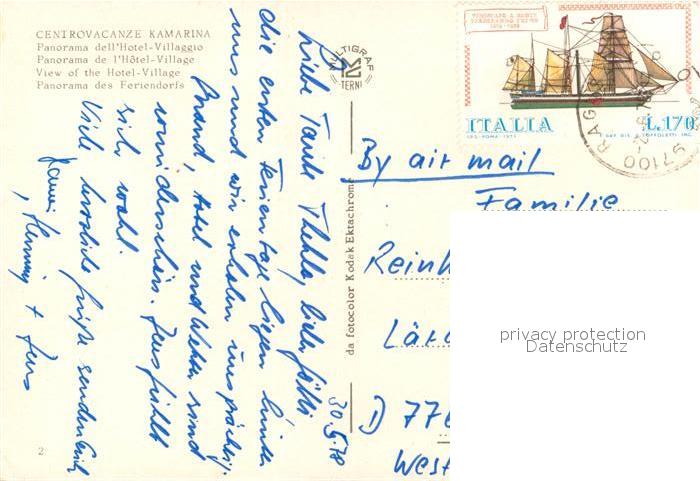 CENTROVACANZE KAMARINA
Panorama dell'Hotel-Villaggio
Panorama de l'Hôtel-Village
View of the Hotel-Village
Panorama des Feriendorfs
MULTIGRAF
TERNI
da fotocolor Kodak Ektachrome
2
30.5.78
Liebe Tante Thekla, lieber Götti
die ersten Ferientage liegen hinter
uns und wir erholen uns prächtig.
Strand, Hotel und Wetter sind
wunderschön. Jens fühlt
sich wohl.
Viele herzliche Grüße senden Euch
Henning + Jens
ITALIA
L.170
97100 RAGUSA
By air mail
Familie
Rein
Lär
D 77
West
privacy protection
Datenschutz